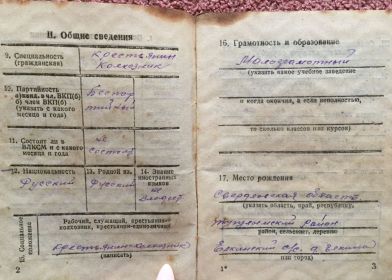 II. Общие сведения
9. Специальность
(гражданская)
Крестьянин
Колхозник
10. Партийность
а) канд. в чл. ВКП(б)
б) член ВКП(б)
(указать с какого
месяца и года)
Беспар
тийный
11. Состоит ли в
ВЛКСМ и с какого
месяца и года
не
состоит
12. Национальность
Русский
13. Родной яз.
Русский
14. Знание
иностранных
языков
не
владеет
15. Социальное
положение
Рабочий, служащий, крестьянин-
колхозник, крестьянин-единоличник
крестьянин колхозник
(написать)
2
16. Грамотность и образование
Малограмотный
(указать какое учебное заведение
и когда окончил, а если неполностью,
то сколько классов или курсов)
17. Место рождения
Свердловская область
(указать область, край, республику,
Тугулымский район
район, селение, деревню
с/с д.
или город)
1*
3